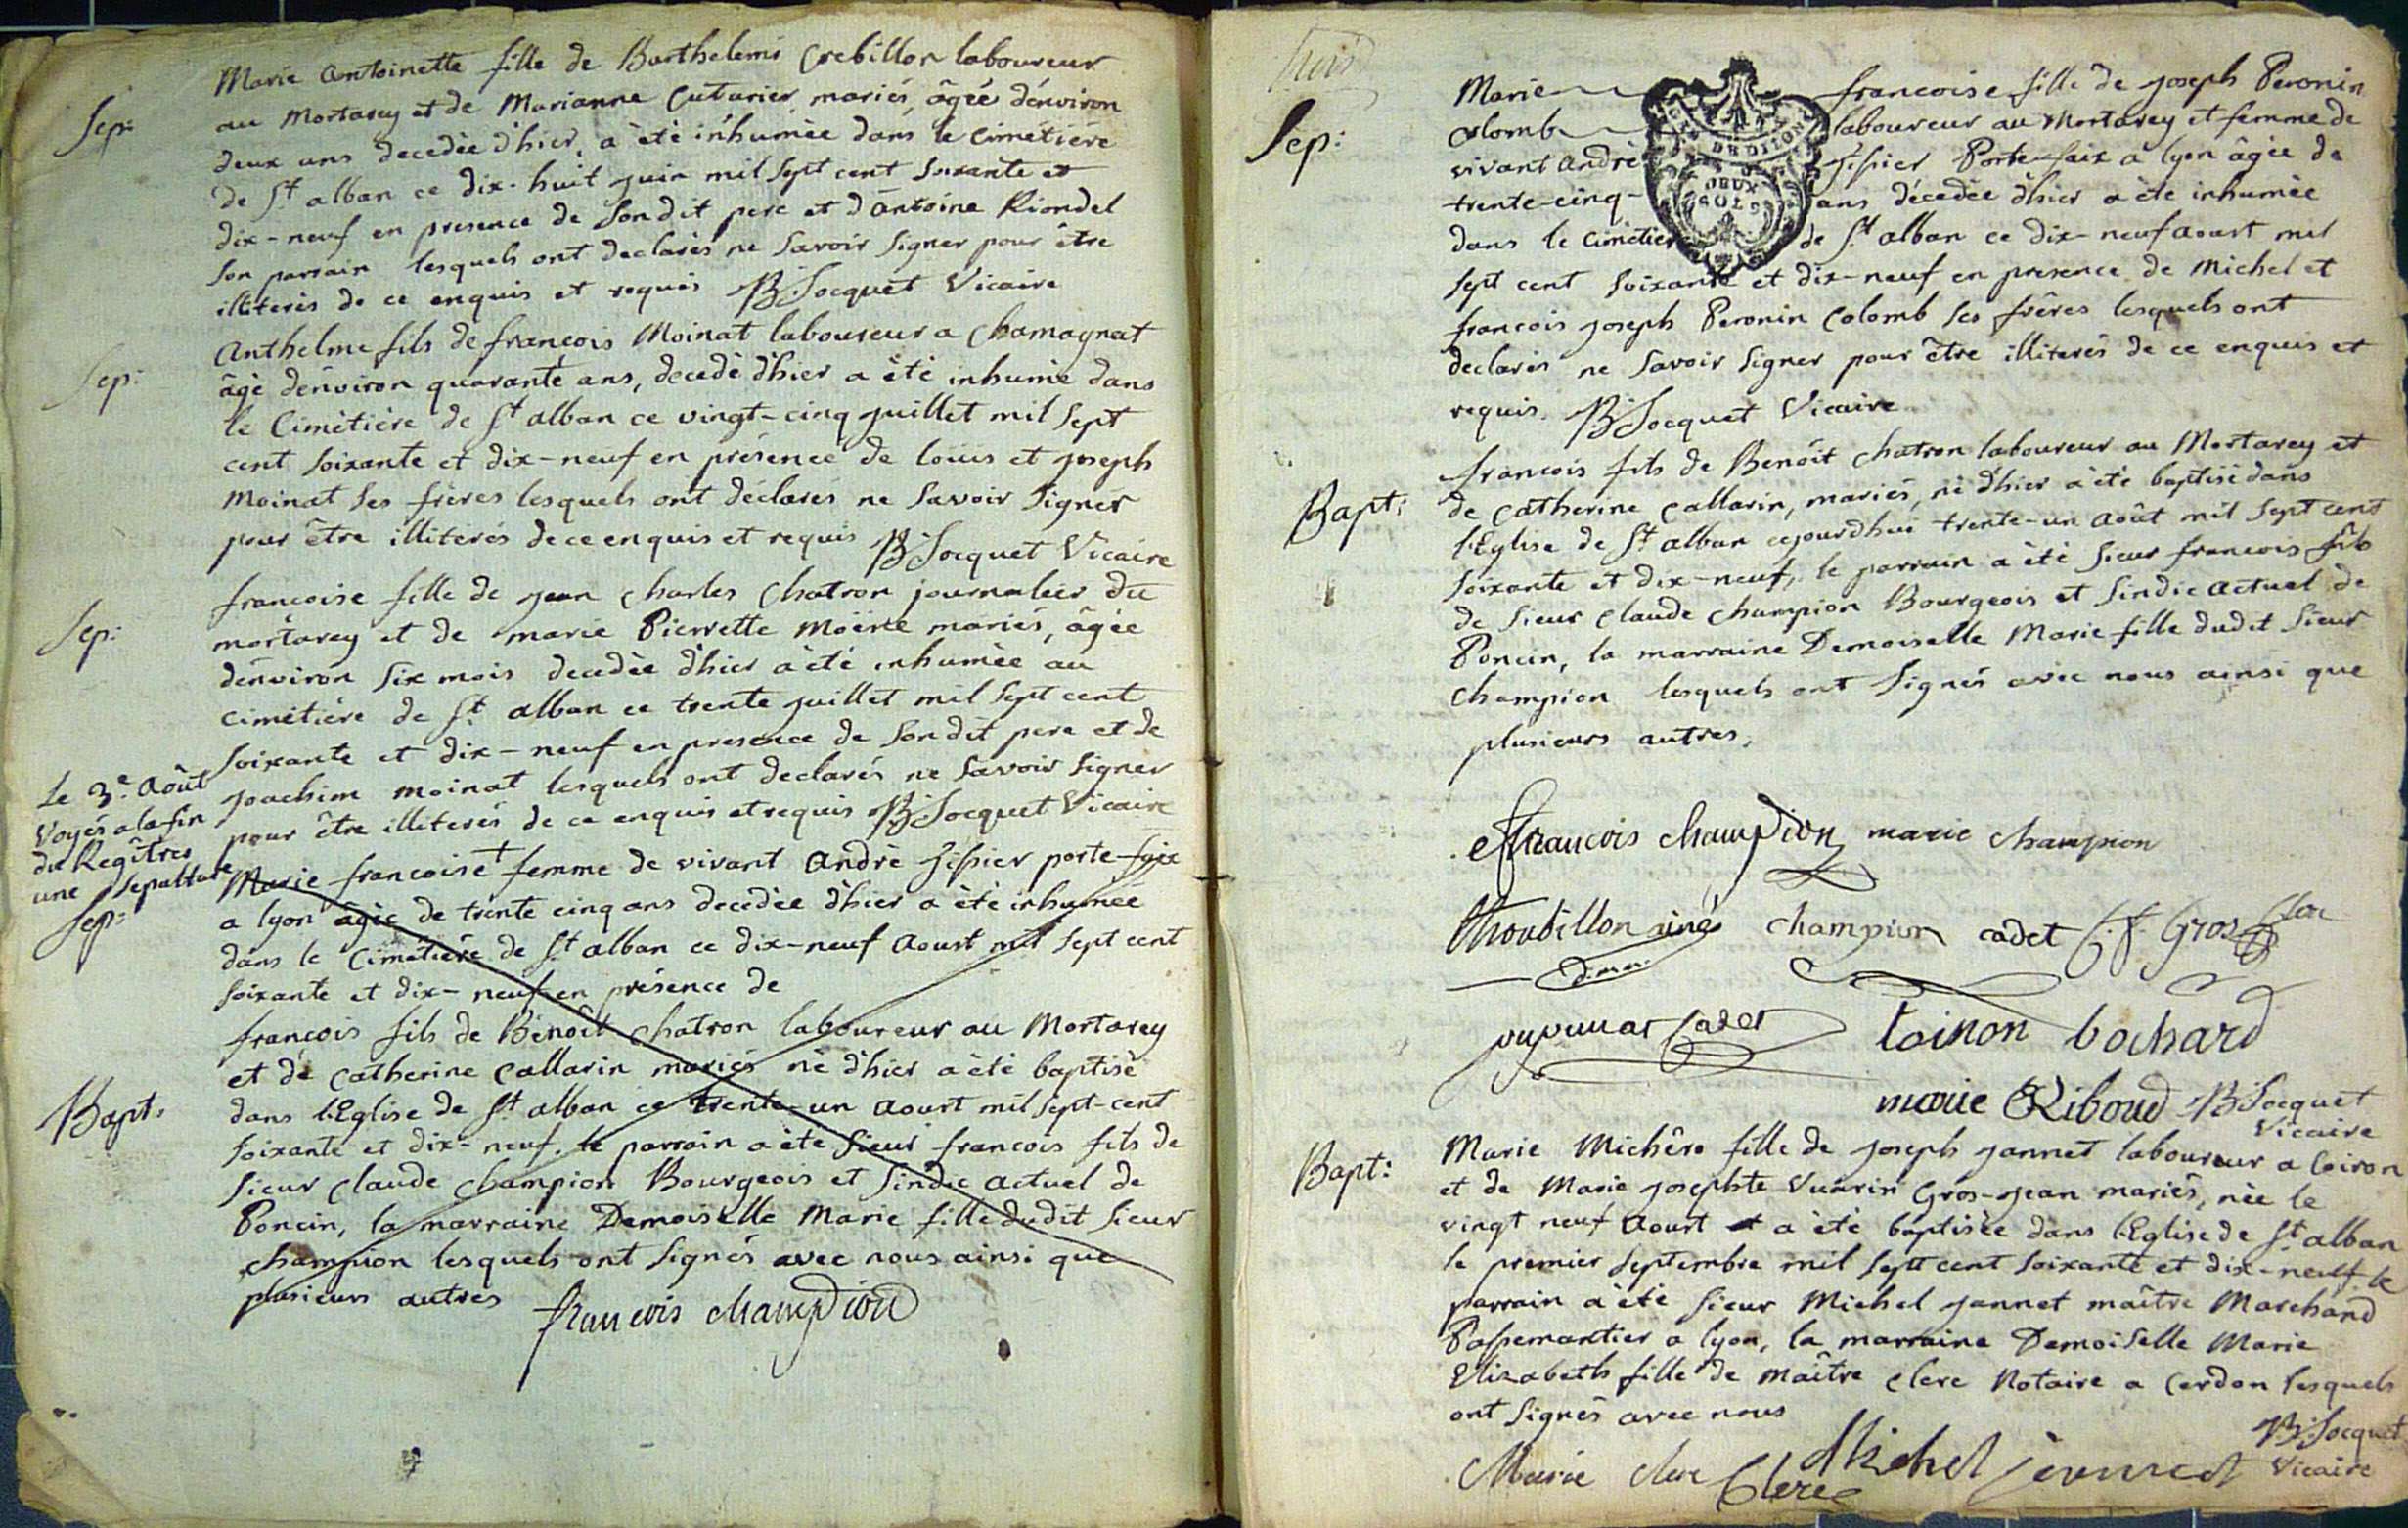 Sep:
Marie antoinette fille de Barthelemi Crebillon laboureur
au Mortarey et de Marianne Cuturier mariés, âgée d'énviron
deux ans decedée d'hier, a èté inhumèe dans le Cimétière
de St alban ce dix-huit juin mil sept cent soixante et
dix-neuf en presence de son dit pere et d'antoine Riondel
son parrain lesquels ont declarés ne savoir signer pour être
illiterés de ce enquis et requis B Jocquet Vicaire
Sep:
Anthelme fils de francois Moinat laboureur a Chamagnat
âgé d'énviron quarante ans, decedé d'hier a été inhumé dans
le Cimètière de St alban ce vingt-cinq juillet mil sept
cent soixante et dix-neuf en présence de loüis et joseph
Moinat ses frères lesquels ont déclarés ne savoir signer
pour être illiterés de ce enquis et requis B Jocquet Vicaire
Sep:
francoise fille de jean charles Chatron journalier du
mortarey et de marie Pierrette Moine mariés, âgée
d'énviron six mois decedée d'hier a été inhumèe au
cimétière de St alban ce trente juillet mil sept cent
soixante et dix-neuf en presence de son dit pere et de
joachim moinat lesquels ont declarés ne savoir signer
pour être illiterés de ce enquis et requis B Jocquet Vicaire
Le 3e. Août
Voyés a la fin
du Regîtres
une sepulture
Sep:
Marie francoise + femme de vivant Andrè porte-faix
a lyon âgée de trente cinq ans decedée d'hier a été inhumée
dans le Cimétière de St alban ce dix-neuf Aoust mil sept cent
soixante et dix-neuf en présence de
Bapt:
francois fils de Benoît Chatron laboureur au Mortarey
et de catherine Callarin mariés né d'hier a été baptisé
dans l'Eglise de St alban ce trente-un Aoust mil sept-cent
soixante et dix-neuf. le parrain a été sieur francois fils de
sieur Claude Champion Bourgeois et sindic actuel de
Poncin, la marraine Demoiselle Marie fille dudit sieur
champion lesquels ont signés avec nous ainsi que
plusieurs autres francois champion
Sep:
Marie francoise fille de joseph Peronin
Colomb laboureur au Mortarey et femme de
vivant andrè Porte-faix a lyon âgée de
trente-cinq- ans décedée d'hier a été inhumée
dans le Cimétier de St alban ce dix-neuf aoust mil
DE DIJON
DEUX
SOLS
sept cent soixante et dix-neuf en presence de Michel et
francois joseph Peronin Colomb ses frêres lesquels ont
declarés ne savoir signer pour être illiterés de ce enquis et
requis. B Jocquet Vicaire
Bapt:
francois fils de Benoît Chatron laboureur au Mortarey et
de Catherine Callarin, mariés, né d'hier a été baptisé dans
l'Eglise de St alban cejourdhui trente-un Août mil sept cent
soixante et dix-neuf, le parrain a été sieur francois fils
de sieur Claude Champion Bourgeois et sindic actuel de
Poncin, la marraine Demoiselle Marie fille dudit sieur
Champion lesquels ont signés avec nous ainsi que
plusieurs autres,
francois champion marie champion
ainé champion cadet Gros
Cadet toinon bochard
marie Riboud B Jocquet
Vicaire
Bapt:
Marie Michêre fille de joseph jannet laboureur a loiron
et de Marie josephte Vuarin Gros-jean mariés, née le
vingt neuf Aoust a été baptisée dans l'Eglise de St alban
le premier septembre mil sept cent soixante et dix-neuf le
parrain a été sieur Michel jannet maître Marchand
Passemantier a lyon, la marraine Demoiselle Marie
Elizabeth fille de maître clerc Notaire a Cerdon lesquels
ont signés avec nous
B Jocquet
Vicaire
Marie clerc Clerc Michel jannet